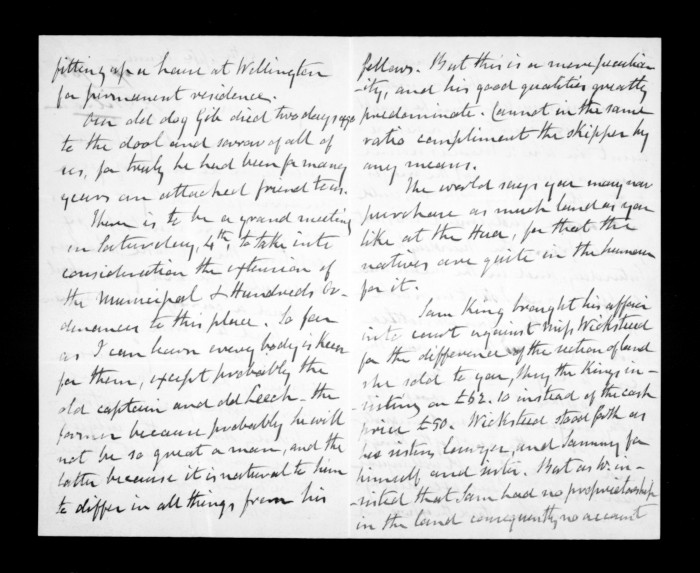 fitting up a house at Wellington
for permanent residence.
Our old dog Gib died two days ago
to the dool and sorrow of all of
us, for truly he had been for many
years an attached friend to us.
There is to be a grand meeting
on Saturday, 4th, to take into
consideration the extension of
the Municipal & Hundreds Or-
dinances to this place. So far
as I can learn every body is keen
for them, except probably the
old captain and old Leech - the
former because probably he will
not be so great a man, and the
latter because it is natural to him
to differ in all things from his
fellows. But this is a mere peculiar
-ity, and his good qualities greatly
predominate. Cannot in the same
ratio compliment the skipper by
any means.
The world says you may now
purchase as much land as you
like at the Hua, for that the
natives are quite in the humour
for it.
Sam King brought his affair
into court against Miss Wicksteed
for the difference of the section of land
she sold to you, they the Kings in-
sisting on £62.10 instead of the cash
price £50. Wicksteed stood forth as
his sisters lawyer, and Sammy for
himself and sister. But as W. in-
sisted that Sam had no proprietorship
in the land consequently no account